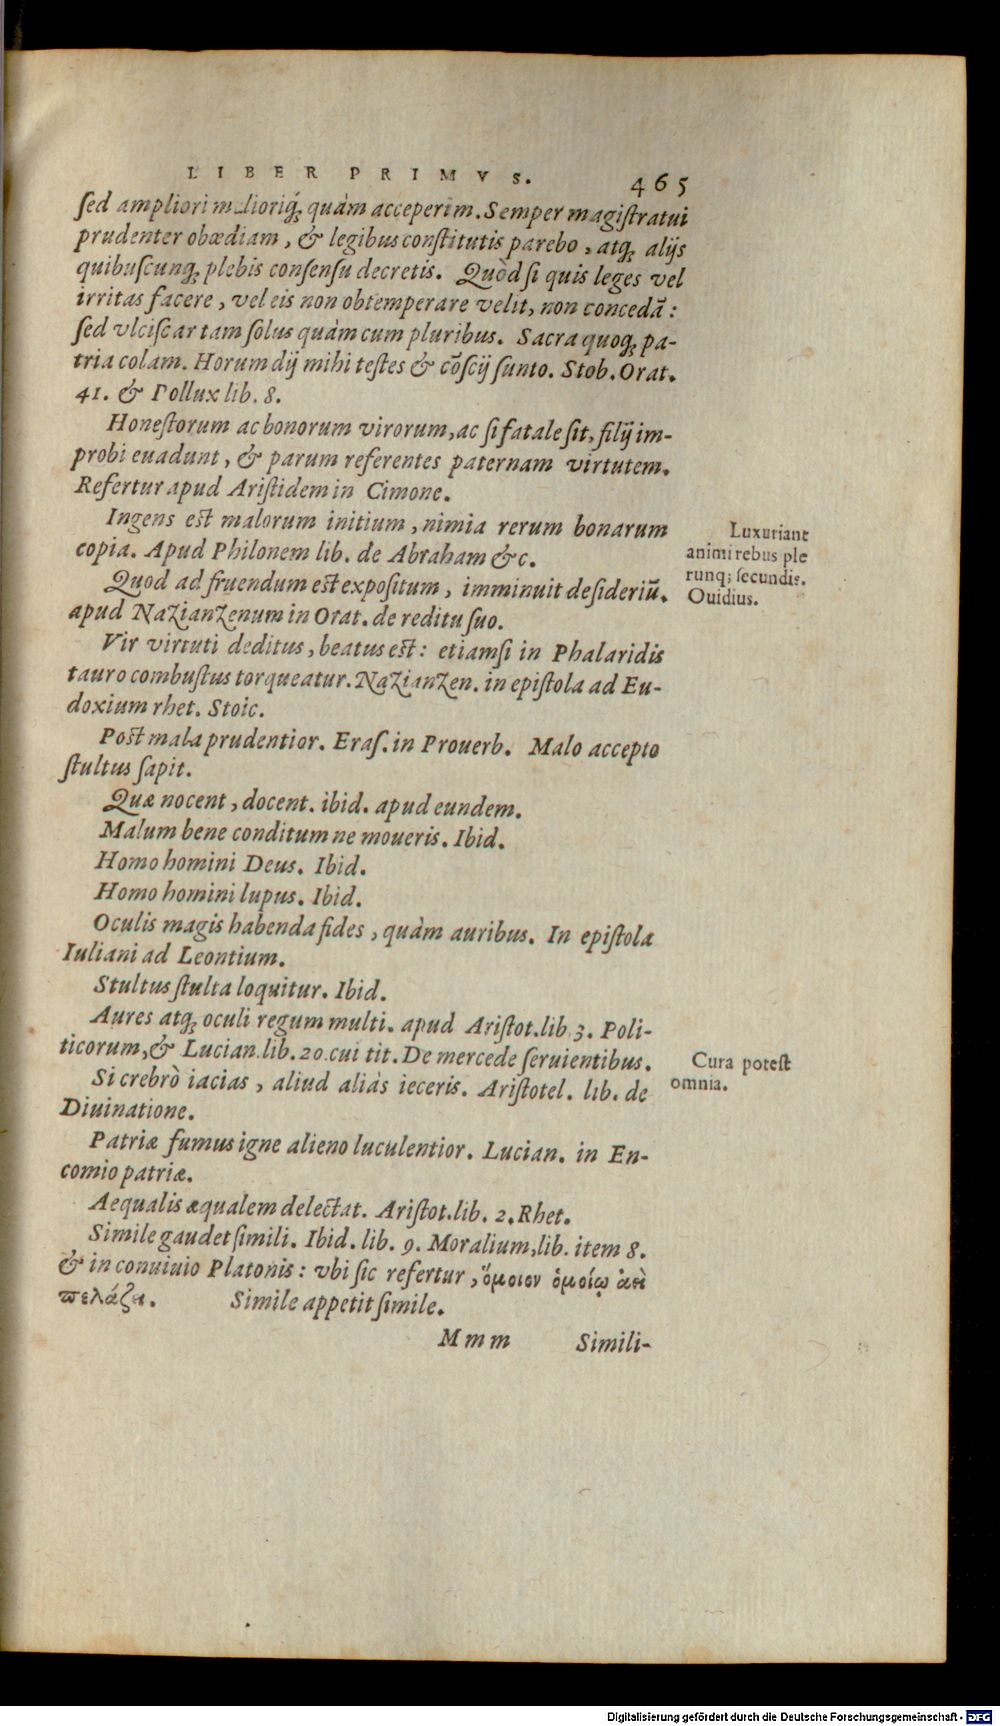 LIBER PRIMVS. 465
ſed ampliori melioriq́; quàm acceperim. Semper magiſtratui
prudenter obœdiam, & legibus conſtitutis parebo, atq; alijs
quibuſcunq; plebis conſenſu decretis. Quòd ſi quis leges vel
irritas facere, vel eis non obtemperare velit, non concedā:
ſed vlciſcar tam ſolus quàm cum pluribus. Sacra quoq; pa-
tria colam. Horum dij mihi teſtes & cōſcij ſunto. Stob. Orat.
41. & Pollux lib. 8.
Honeſtorum ac bonorum virorum, ac ſi fatale ſit, filij im-
probi euadunt, & parum referentes paternam virtutem.
Refertur apud Ariſtidem in Cimone.
Ingens eſt malorum initium, nimia rerum bonarum
copia. Apud Philonem lib. de Abraham &c.
Luxuriant
animi rebus ple
runq; ſecundis.
Ouidius.
Quod ad fruendum eſt expoſitum, imminuit deſideriū.
apud Nazianzenum in Orat. de reditu ſuo.
Vir virtuti deditus, beatus eſt: etiamſi in Phalaridis
tauro combuſtus torqueatur. Nazianzen. in epiſtola ad Eu-
doxium rhet. Stoic.
Poſt mala prudentior. Eraſ. in Prouerb. Malo accepto
ſtultus ſapit.
Quæ nocent, docent. ibid. apud eundem.
Malum bene conditum ne moueris. Ibid.
Homo homini Deus. Ibid.
Homo homini lupus. Ibid.
Oculis magis habenda fides, quàm auribus. In epiſtola
Iuliani ad Leontium.
Stultus ſtulta loquitur. Ibid.
Aures atq; oculi regum multi. apud Ariſtot. lib. 3. Poli-
ticorum, & Lucian. lib. 20. cui tit. De mercede ſeruientibus.
Si crebrò iacias, aliud aliàs ieceris. Ariſtotel. lib. de
Diuinatione.
Cura poteſt
omnia.
Patriæ fumus igne alieno luculentior. Lucian. in En-
comio patriæ.
Aequalis æqualem delectat. Ariſtot. lib. 2. Rhet.
Simile gaudet ſimili. Ibid. lib. 9. Moralium, lib. item 8.
& in conuiuio Platonis: vbi ſic refertur, ὅμοιον ὁμοίῳ ἀεὶ
πελάζει. Simile appetit ſimile.
Mmm Simili-
Digitalisierung gefördert durch die Deutsche Forschungsgemeinschaft - DFG